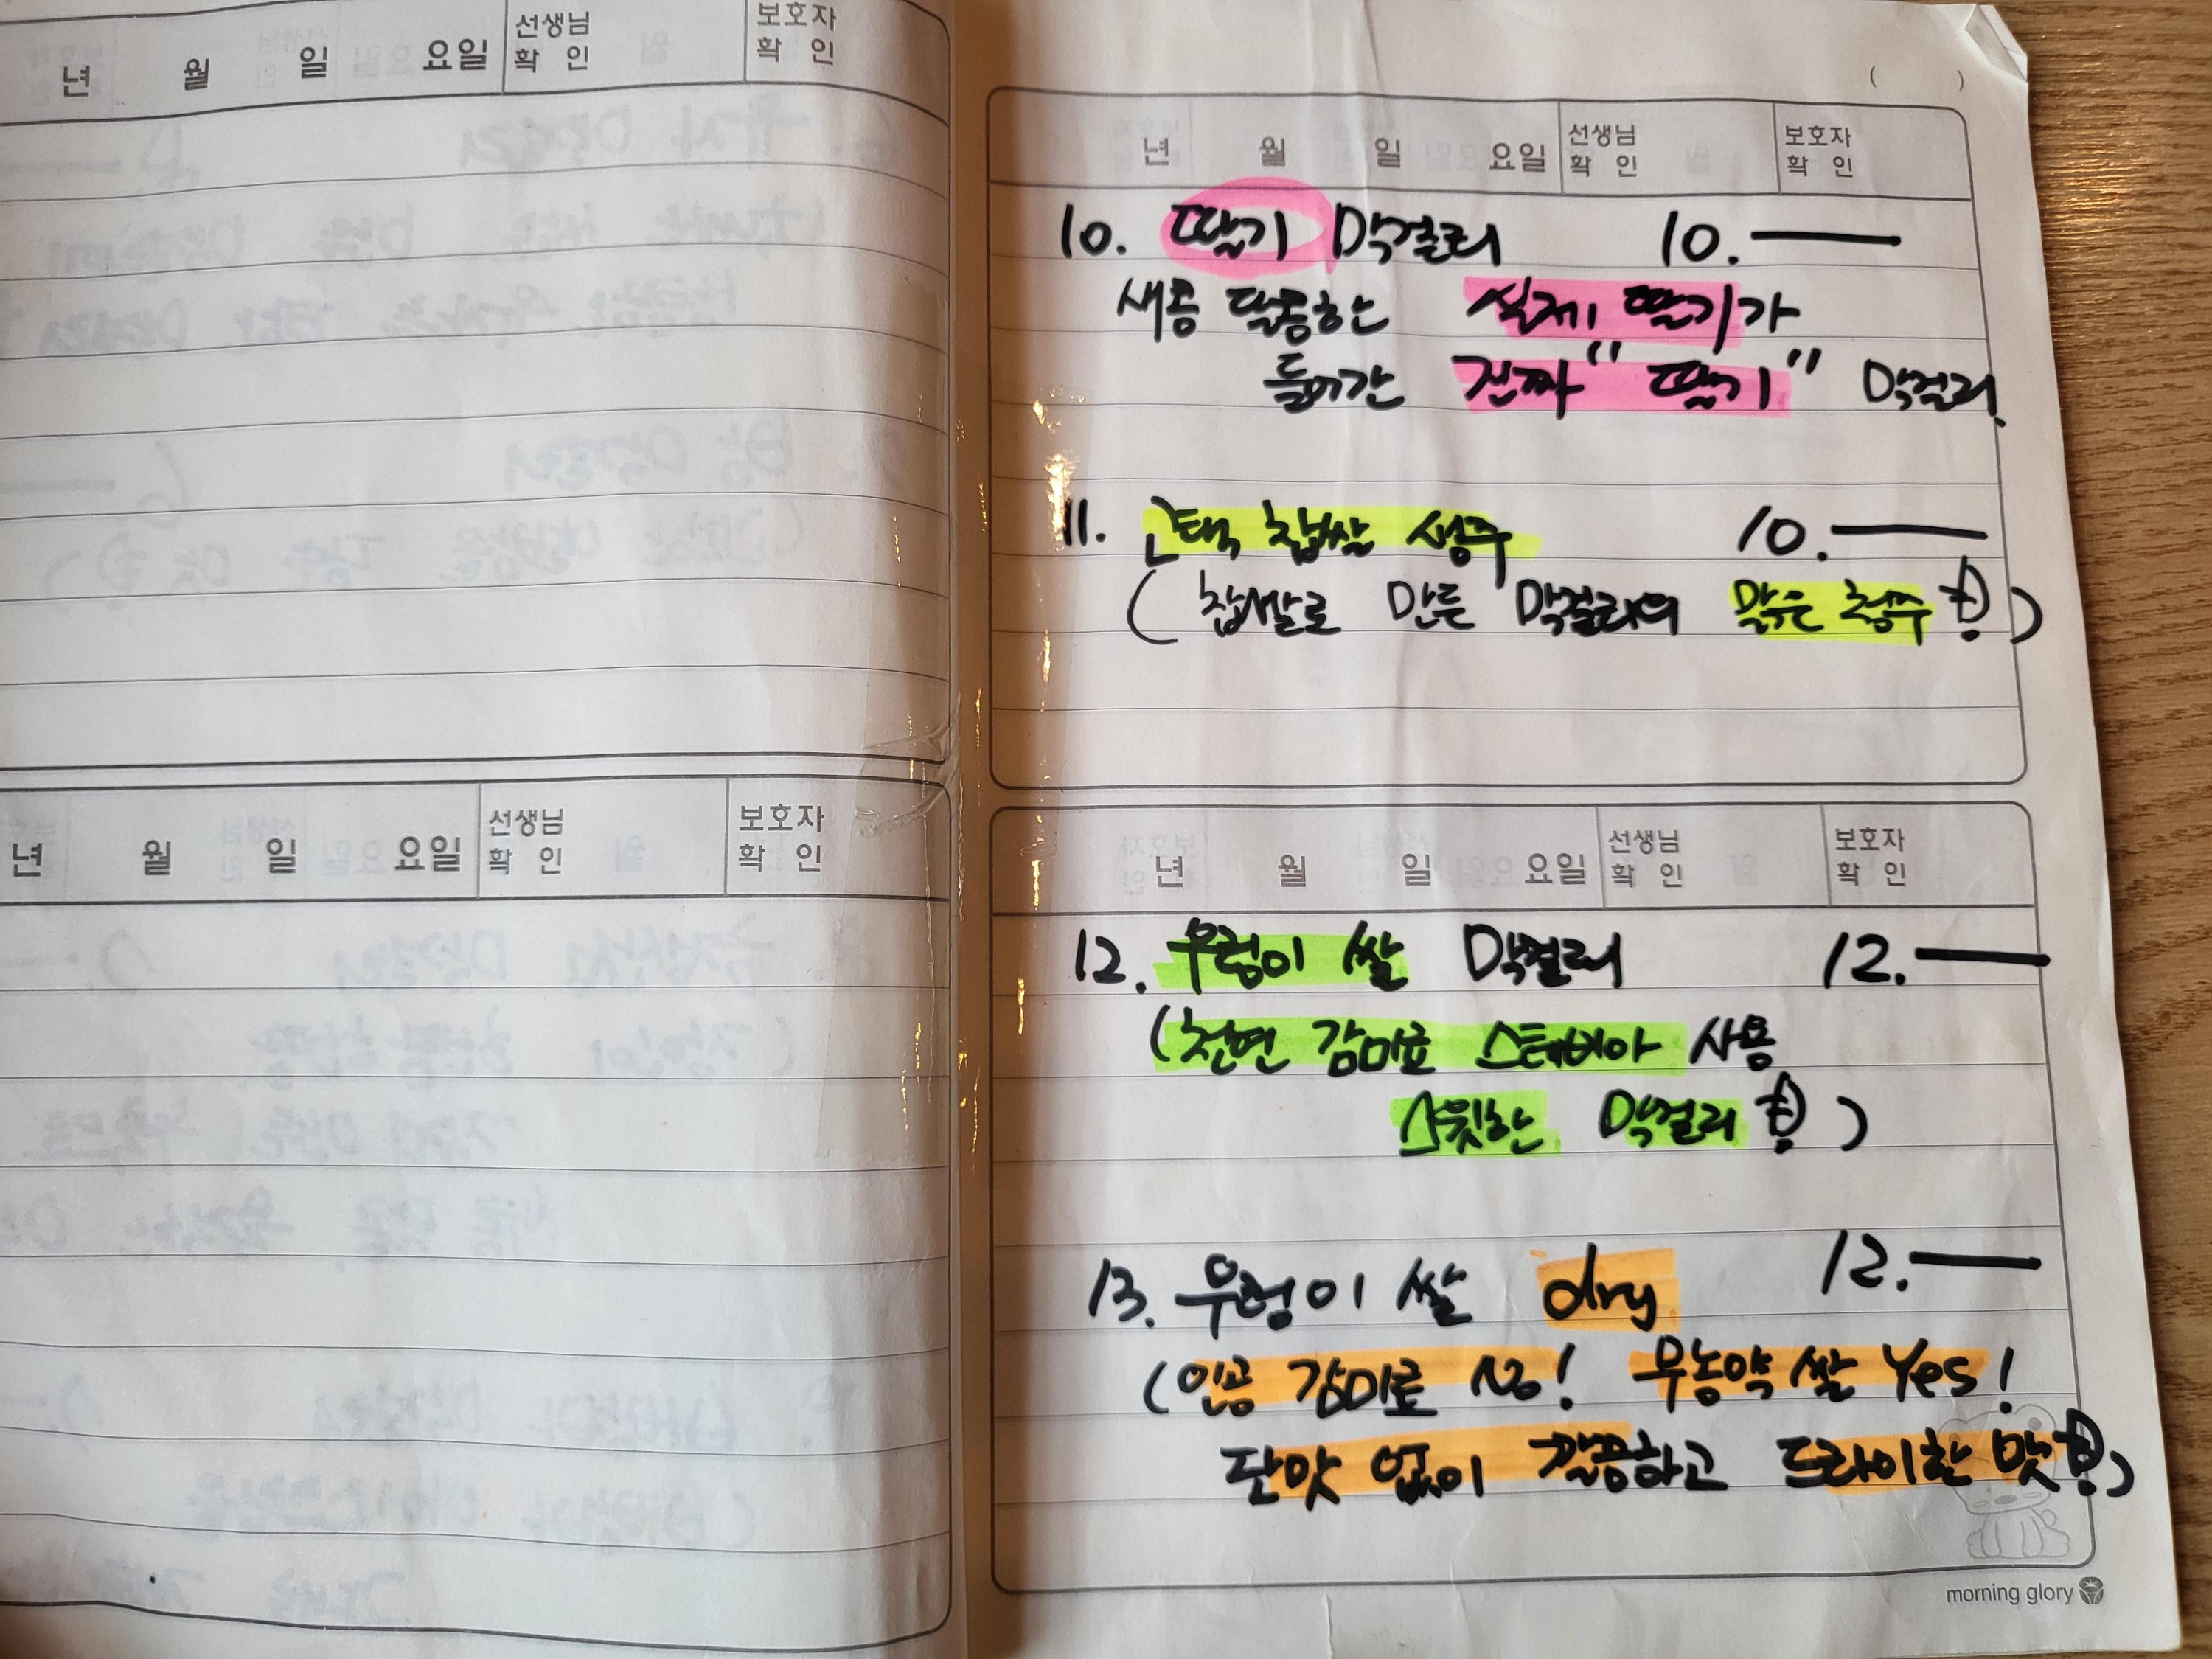 년 월 일 요일 선생님 확 인 보호자 확 인
( )
년 월 일 요일 선생님 확 인 보호자 확 인
10. 딸기 막걸리 10.
새콤 달콤한 실제 딸기가
들어간 진짜 "딸기" 막걸리.
11. 찹쌀 10.
( 찹쌀로 만든 막걸리의 맑은 청주 )
년 월 일 요일 선생님 확 인 보호자 확 인
년 월 일 요일 선생님 확 인 보호자 확 인
12. 우렁이 쌀 막걸리 12.
(천연 감미료 스테비아 사용
스윗한 막걸리 )
13. 우렁이 쌀 dry 12.
(인공 감미료 NO! 무농약 쌀 Yes!
단맛 없이 깔끔하고 드라이한 맛 )
morning glory